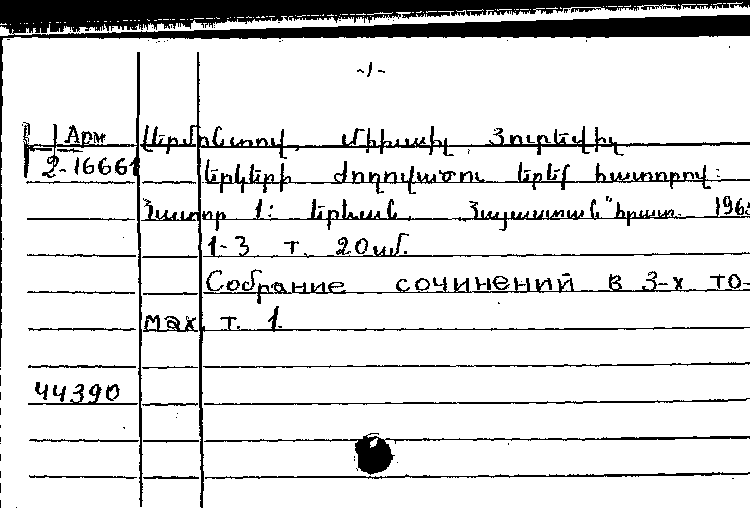 -1-
Арм
2-16661
Լերմոնտով, Միխայիլ Յուրեվիչ
Երկերի ժողովածու երեք հատորով:
Հատոր 1: Երևան, Հայաստան" հրատ. 196
1-3 т. 20սմ.
Собрание сочинений в 3-х то-
мах, т. 1.
44390